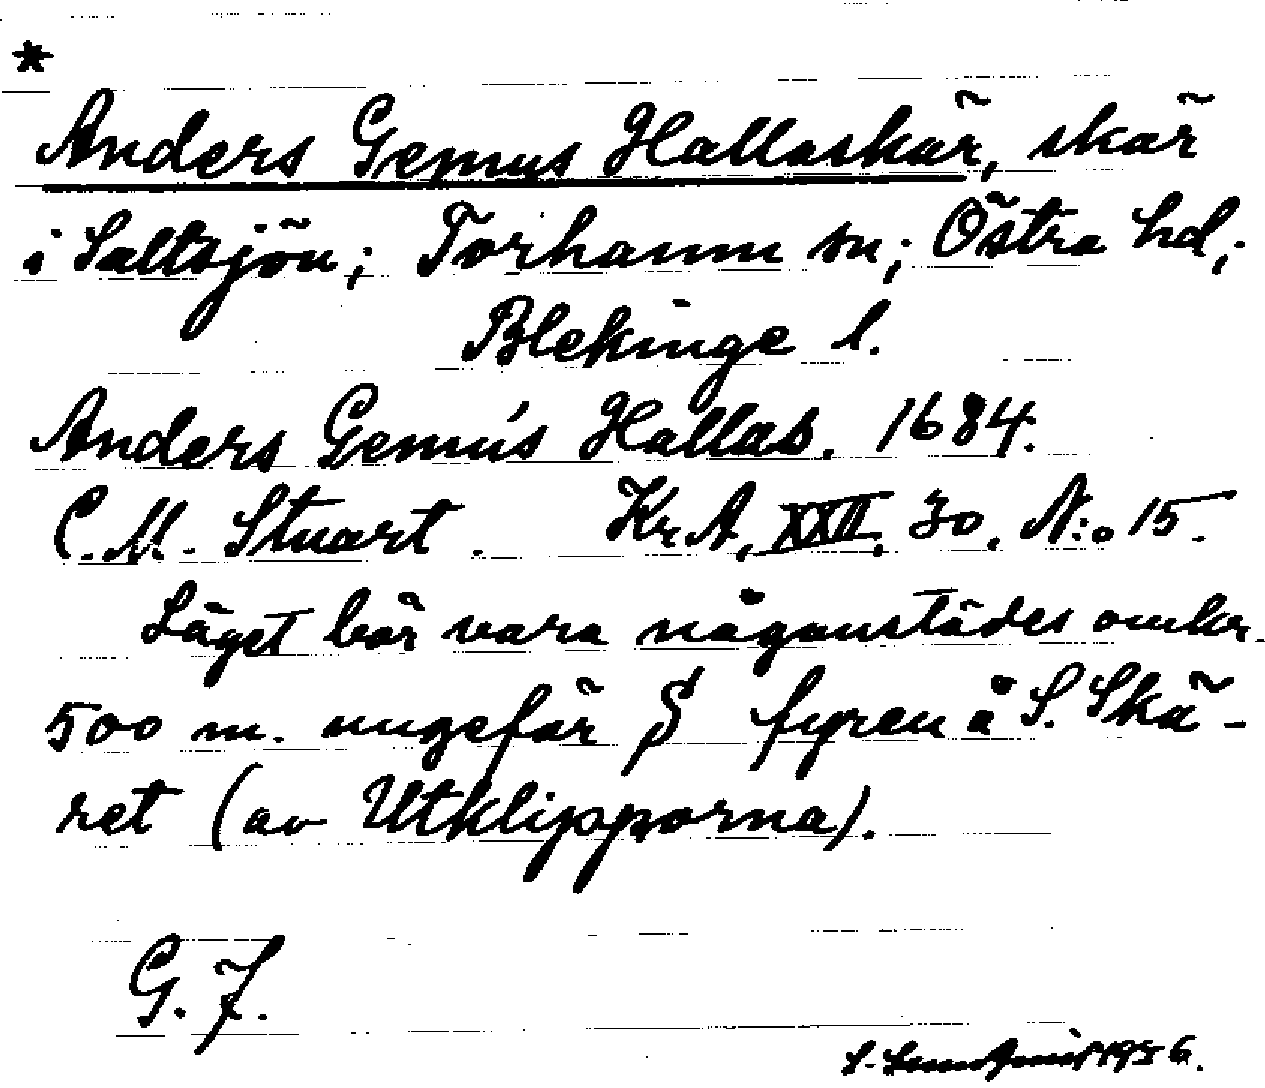 *
Anders Gemus Hallaskär, skär
i Saltsjön; Torhamn sn; Östra hd;
Blekinge l.
Anders Gemús Hallas. 1684.
C. M. Stuart. Kr. A, XXII, 30, N:o 15.
Läget bör vara någonstädes omkr.
500 m. ungefär S fyren å S. Skä-
ret (av Utklipporna).
G. F.
S. 1956.